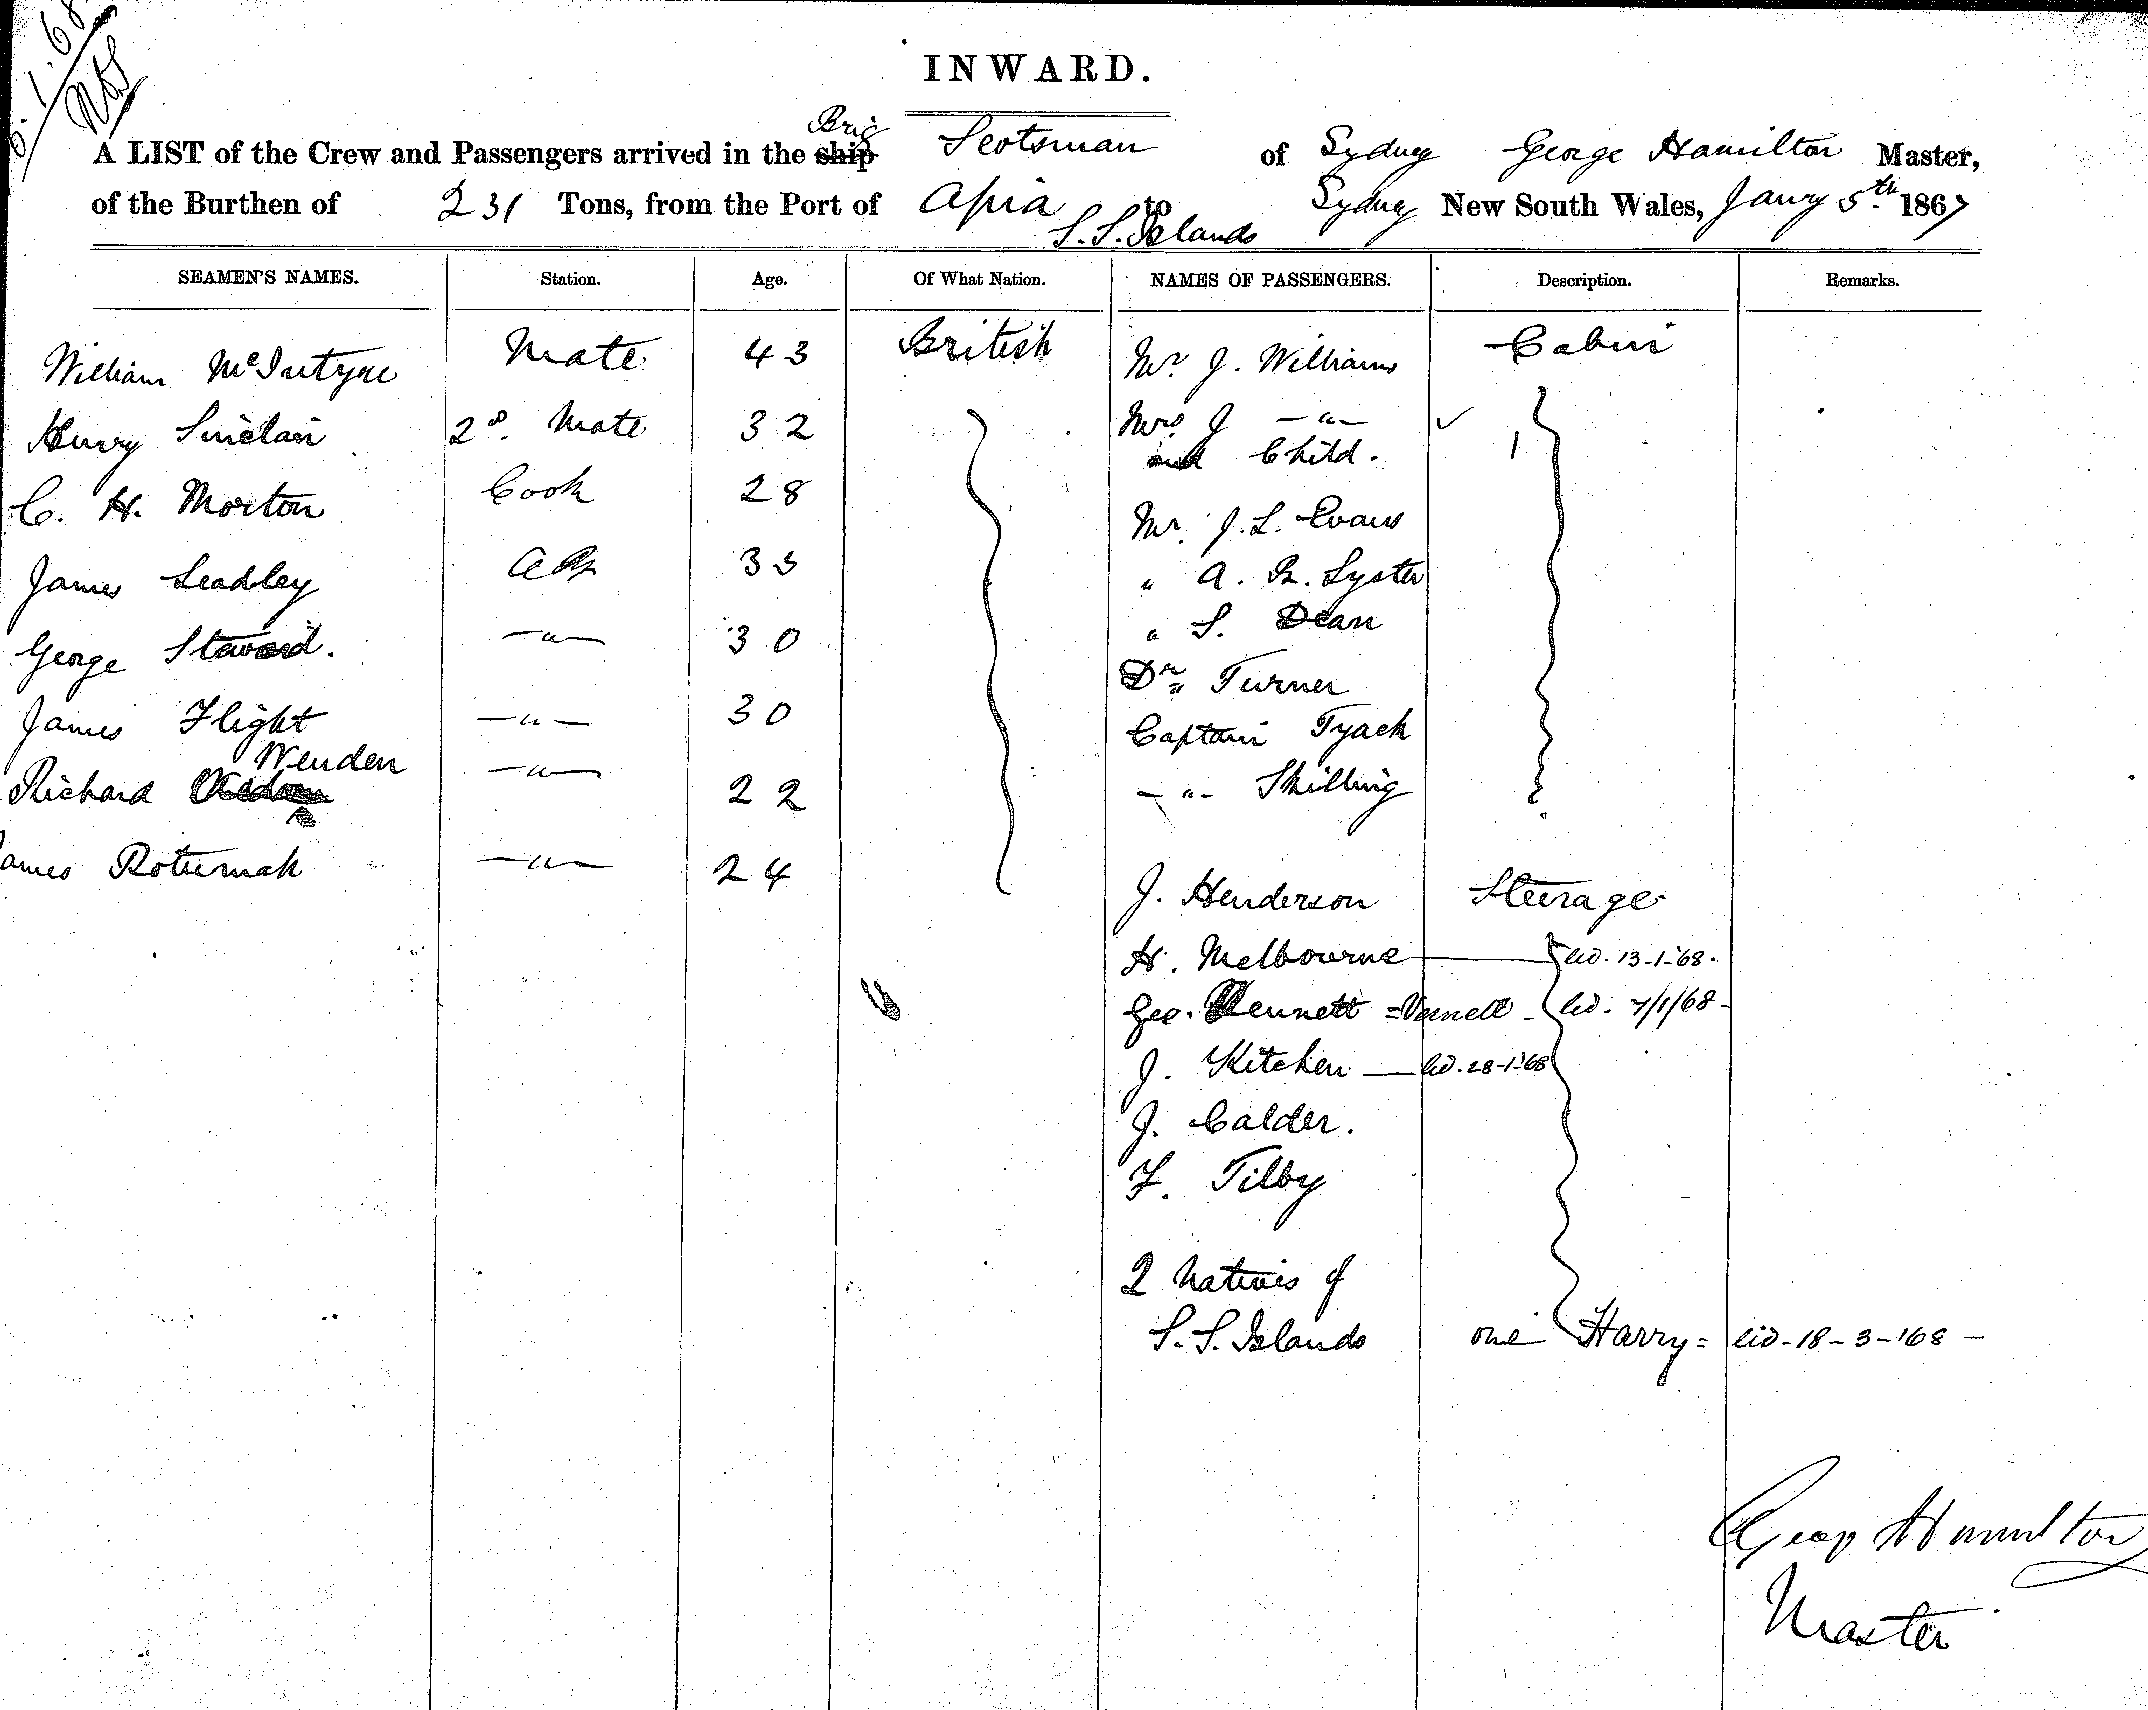 6.1.68
INWARD.
Brig
A LIST of the Crew and Passengers arrived in the ship Scotsman of Sydney George Hamilton Master,
of the Burthen of 231 Tons, from the Port of Apia to Sydney New South Wales, Jany 5th 1867
S.S. Islands
SEAMEN'S NAMES. Station. Age. Of What Nation. NAMES OF PASSENGERS. Description. Remarks.
William McIntyre Mate 43 British Mr. J. Williams Cabin
Henry Sinclair 2d. Mate 32 Mrs J —"— ✓
and Child. 1
C. H. Morton Cook 28 Mr. J. L. Evans
James Leadley AB 33 " A. B. Lyster
George Steward. —"— 30 " S. Dean
Dr " Turner
James Flight —"— 30 Captain Tyack
Wenden
Richard —"— 22 —"— Skilling
James Rotumah —"— 24 J. Henderson Steerage
H. Melbourne — lid. 13-1-'68.
Geo. Vennett = Vernell - lid. 7/1/68 -
J. Kitchen — lid. 28-1-'68
J. Calder.
F. Tilby
2 Natives of
S.S. Islands one Harry = lid - 18 - 3 - '68 -
George Hamilton
Master